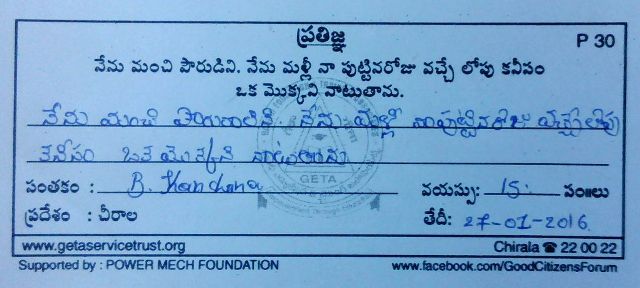 ప్రతిజ్ఞ
P 30
నేను మంచి పౌరుడిని. నేను మళ్లీ నా పుట్టినరోజు వచ్చే లోపు కనీసం
ఒక మొక్కని నాటుతాను.
నేను మంచి పౌరురాలిని. నేను మళ్లీ నా పుట్టినరోజు వచ్చేలోపు
కనీసం ఒక మొక్కని నాటుతాను
సంతకం : B. Kanchana వయస్సు: 15. సం॥లు
ప్రదేశం : చీరాల తేదీ: 27-01-2016
GETA
www.getaservicetrust.org Chirala ☎ 22 00 22
Supported by : POWER MECH FOUNDATION www.facebook.com/GoodCitizensForum